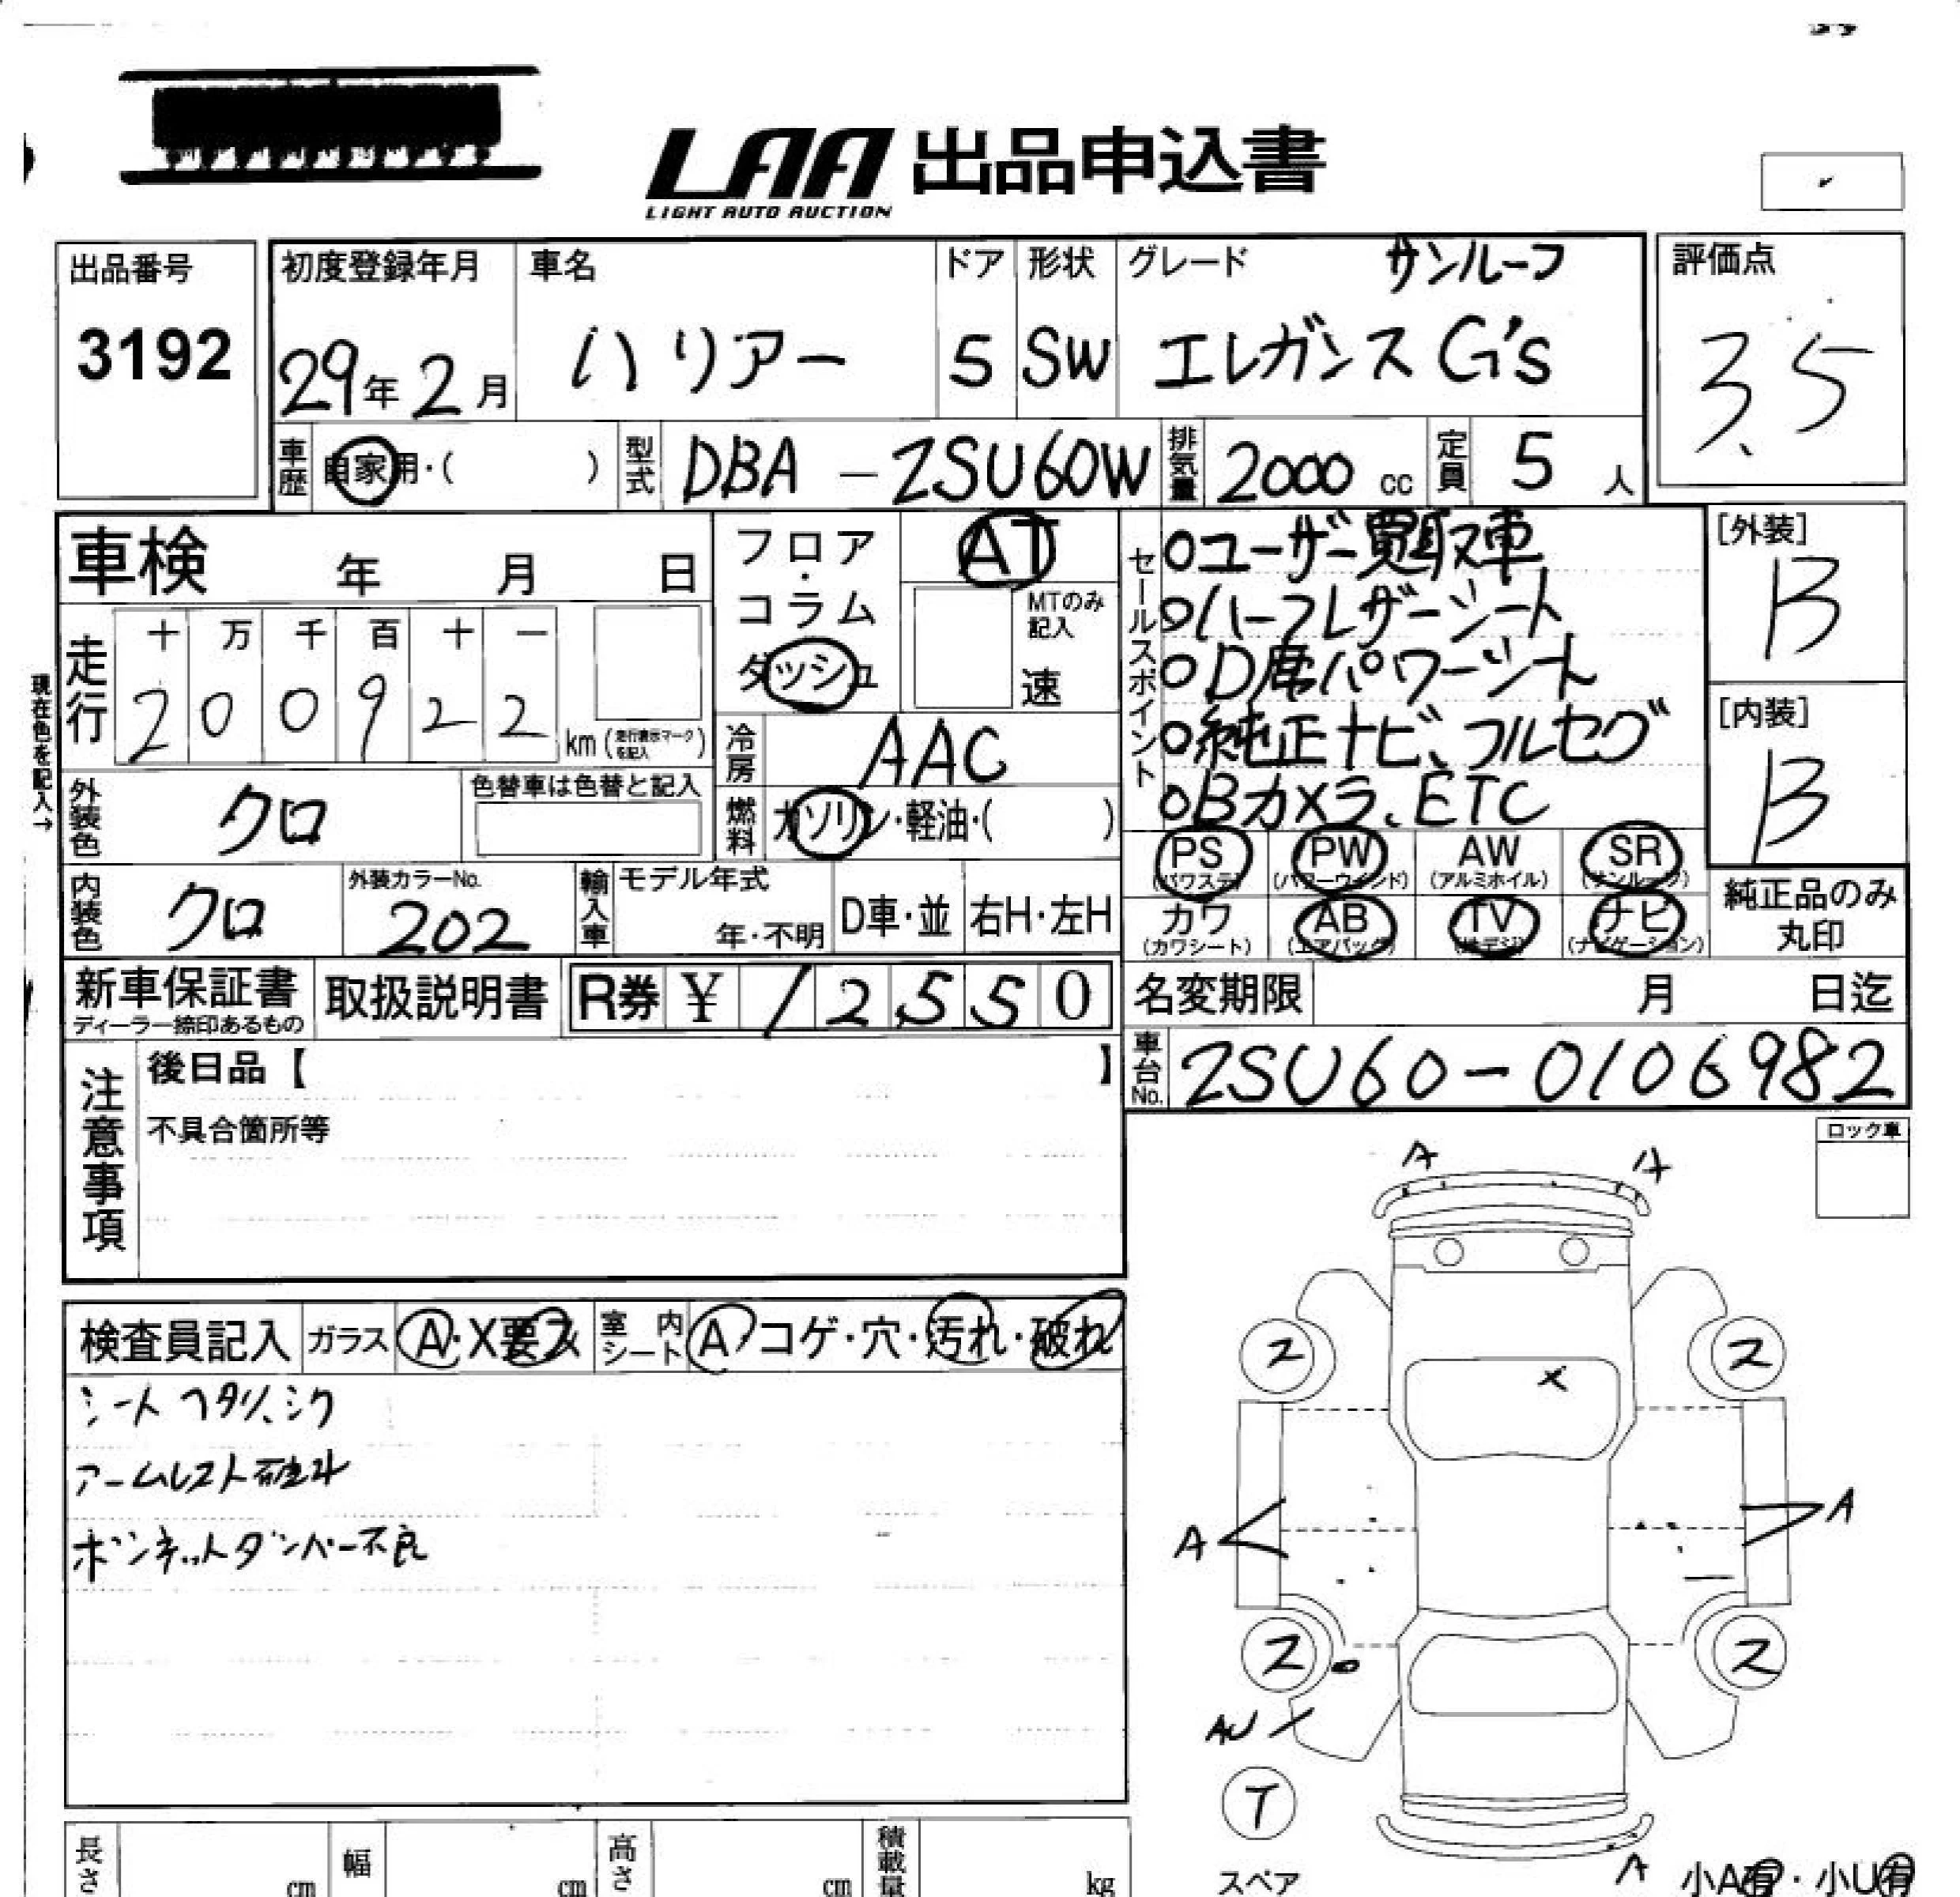 LAA 出品申込書
LIGHT AUTO AUCTION
出品番号
3192
初度登録年月
29年2月
車名
ハリアー
ドア
5
形状
SW
グレード
サンルーフ
エレガンスG's
評価点
3.5
車歴
自家用・( )
型式
DBA-ZSU60W
排気量
2000 cc
定員
5 人
車検 年 月 日
フロア・コラム
ダッシュ
AT
MTのみ記入
速
走行
十 万 千 百 十 一
2 0 0 9 2 2
km (走行表示マークを記入)
現在色を記入→
冷房
AAC
外装色
クロ
色替車は色替と記入
燃料
ガソリン・軽油・( )
内装色
クロ
外装カラーNo.
202
輸入車
モデル年式
年・不明
D車・並
右H・左H
セールスポイント
○ユーザー買取車
○ハーフレザーシート
○D席パワーシート
○純正ナビ、フルセグ
○Bカメラ、ETC
[外装]
B
[内装]
B
PS
(パワステ)
PW
(パワーウインド)
AW
(アルミホイル)
SR
(サンルーフ)
カワ
(カワシート)
AB
(エアバッグ)
TV
(地デジ)
ナビ
(ナビゲーション)
純正品のみ
丸印
新車保証書
ディーラー捺印あるもの
取扱説明書
R券 ¥ 12550
名変期限 月 日迄
車台No.
ZSU60-0106982
注意事項
後日品【 】
不具合箇所等
ロック車
検査員記入
ガラス
A・X要
室内シート
A・コゲ・穴・汚れ・破れ
シートヘタリ、シワ
アームレスト破れ
ボンネットダンパー不良
A
A
2
2
X
A
A
2
2
AU
T
スペア
A
小A有・小U有
長さ cm
幅 cm
高さ cm
積載量 kg